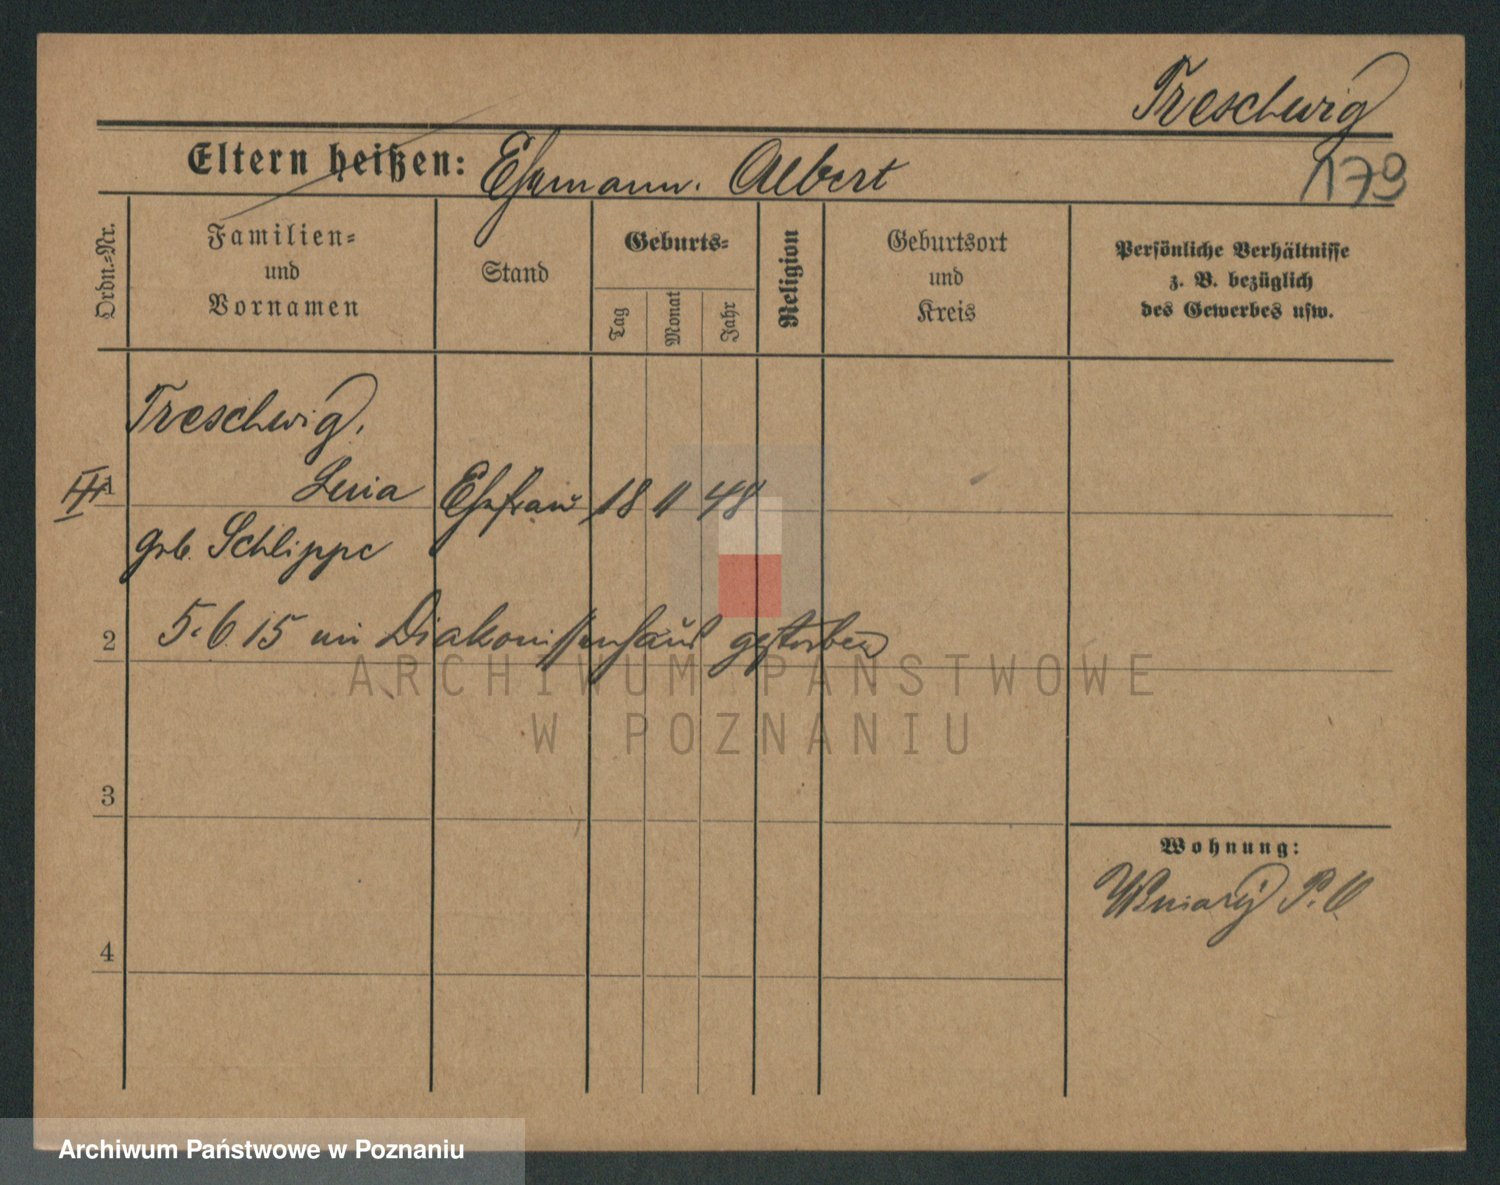 Treschwig
179
Eltern heißen: Ehemann. Albert
Ordn.-Nr.
Familien-
und
Vornamen
Stand
Geburts-
Tag
Monat
Jahr
Religion
Geburtsort
und
Kreis
Persönliche Verhältnisse
z. B. bezüglich
des Gewerbes usw.
Treschwig,
III 1 Ehefrau 18 11 48
geb. Schlippe
2 5.6.15 im Diakonissenhaus gestorben
ARCHIWUM PAŃSTWOWE
W POZNANIU
3
Wohnung:
4
Archiwum Państwowe w Poznaniu